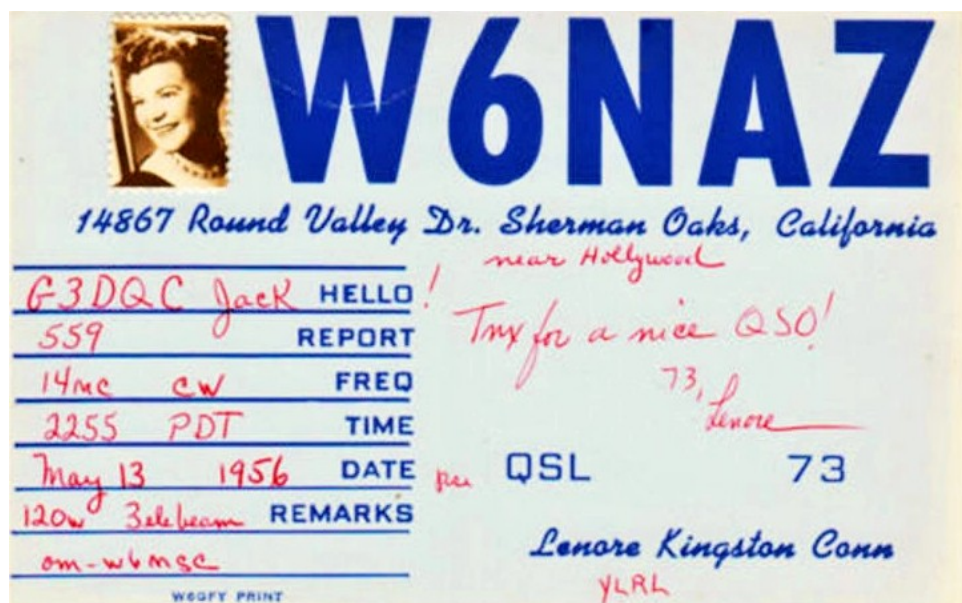 W6NAZ
14867 Round Valley Dr. Sherman Oaks, California
near Hollywood
G3DQC Jack HELLO!
559 REPORT
14mc cw FREQ
2255 PDT TIME
May 13 1956 DATE
120w 3elebeam REMARKS
om-w6msc
Tnx for a nice QSO!
73,
Lenore
pse QSL 73
Lenore Kingston Conn
YLRL
W6GFY PRINT